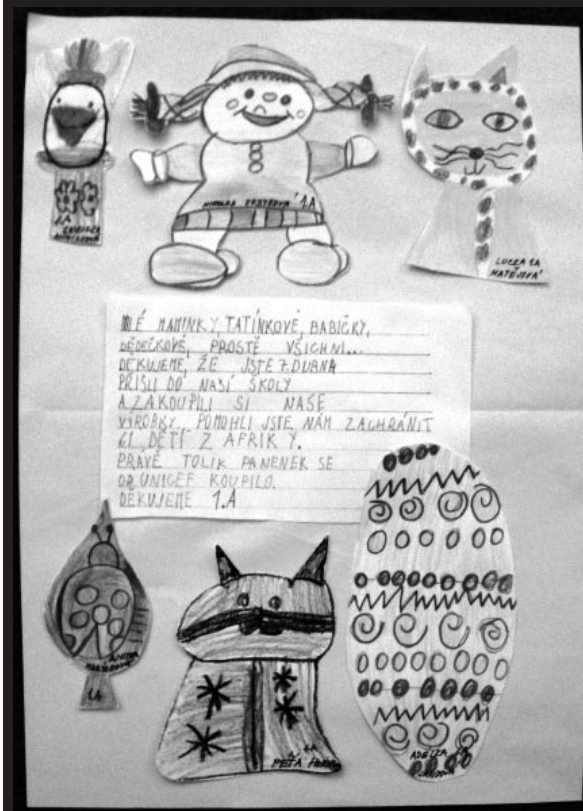 1.A
NIKOLKA 1.A
LUCKA 1.A
MATĚJOVÁ
MÉ MAMINKY, TATÍNKOVÉ, BABIČKY,
DĚDEČKOVÉ, PROSTĚ VŠICHNI...
DĚKUJEME, ŽE JSTE 7. DUBNA
PŘIŠLI DO NAŠÍ ŠKOLY
A ZAKOUPILI SI NAŠE
VÝROBKY. POMOHLI JSTE NÁM ZACHRÁNIT
61 DĚTÍ Z AFRIKY.
PRÁVĚ TOLIK PANENEK SE
OD UNICEF KOUPILO.
DĚKUJEME 1.A
1.A
1.A
PEŤA
ADÉLKA